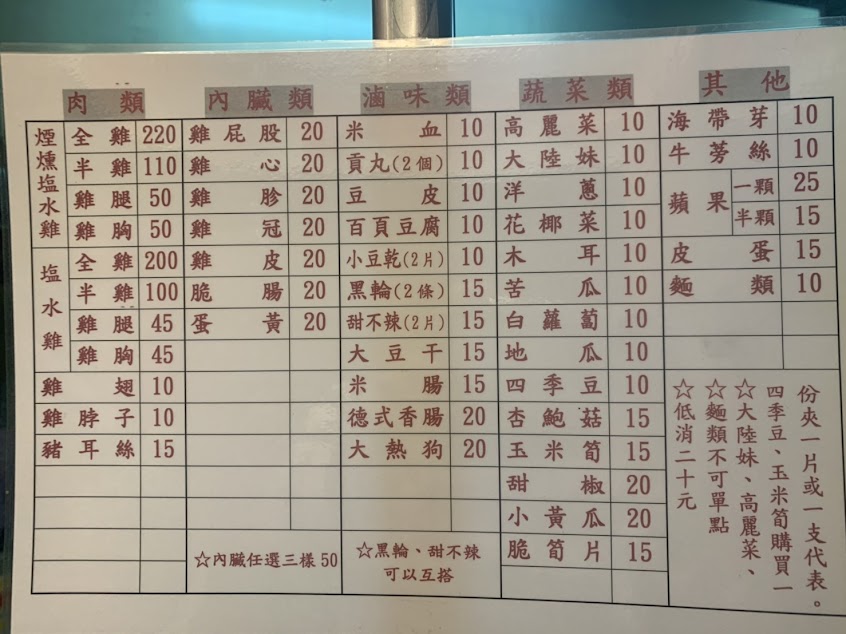 肉類
煙燻塩水雞
全雞 220
半雞 110
雞腿 50
雞胸 50
塩水雞
全雞 200
半雞 100
雞腿 45
雞胸 45
雞翅 10
雞脖子 10
豬耳絲 15
內臟類
雞屁股 20
雞心 20
雞胗 20
雞冠 20
雞皮 20
脆腸 20
蛋黃 20
☆內臟任選三樣50
滷味類
米血 10
貢丸(2個) 10
豆皮 10
百頁豆腐 10
小豆乾(2片) 10
黑輪(2條) 15
甜不辣(2片) 15
大豆干 15
米腸 15
德式香腸 20
大熱狗 20
☆黑輪、甜不辣
可以互搭
蔬菜類
高麗菜 10
大陸妹 10
洋蔥 10
花椰菜 10
木耳 10
苦瓜 10
白蘿蔔 10
地瓜 10
四季豆 10
杏鮑菇 15
玉米筍 15
甜椒 20
小黃瓜 20
脆筍片 15
其他
海帶芽 10
牛蒡絲 10
蘋果
一顆 25
半顆 15
皮蛋 15
麵類 10
☆低消二十元
☆麵類不可單點
☆大陸妹、高麗菜、
四季豆、玉米筍購買一
份夾一片或一支代表。